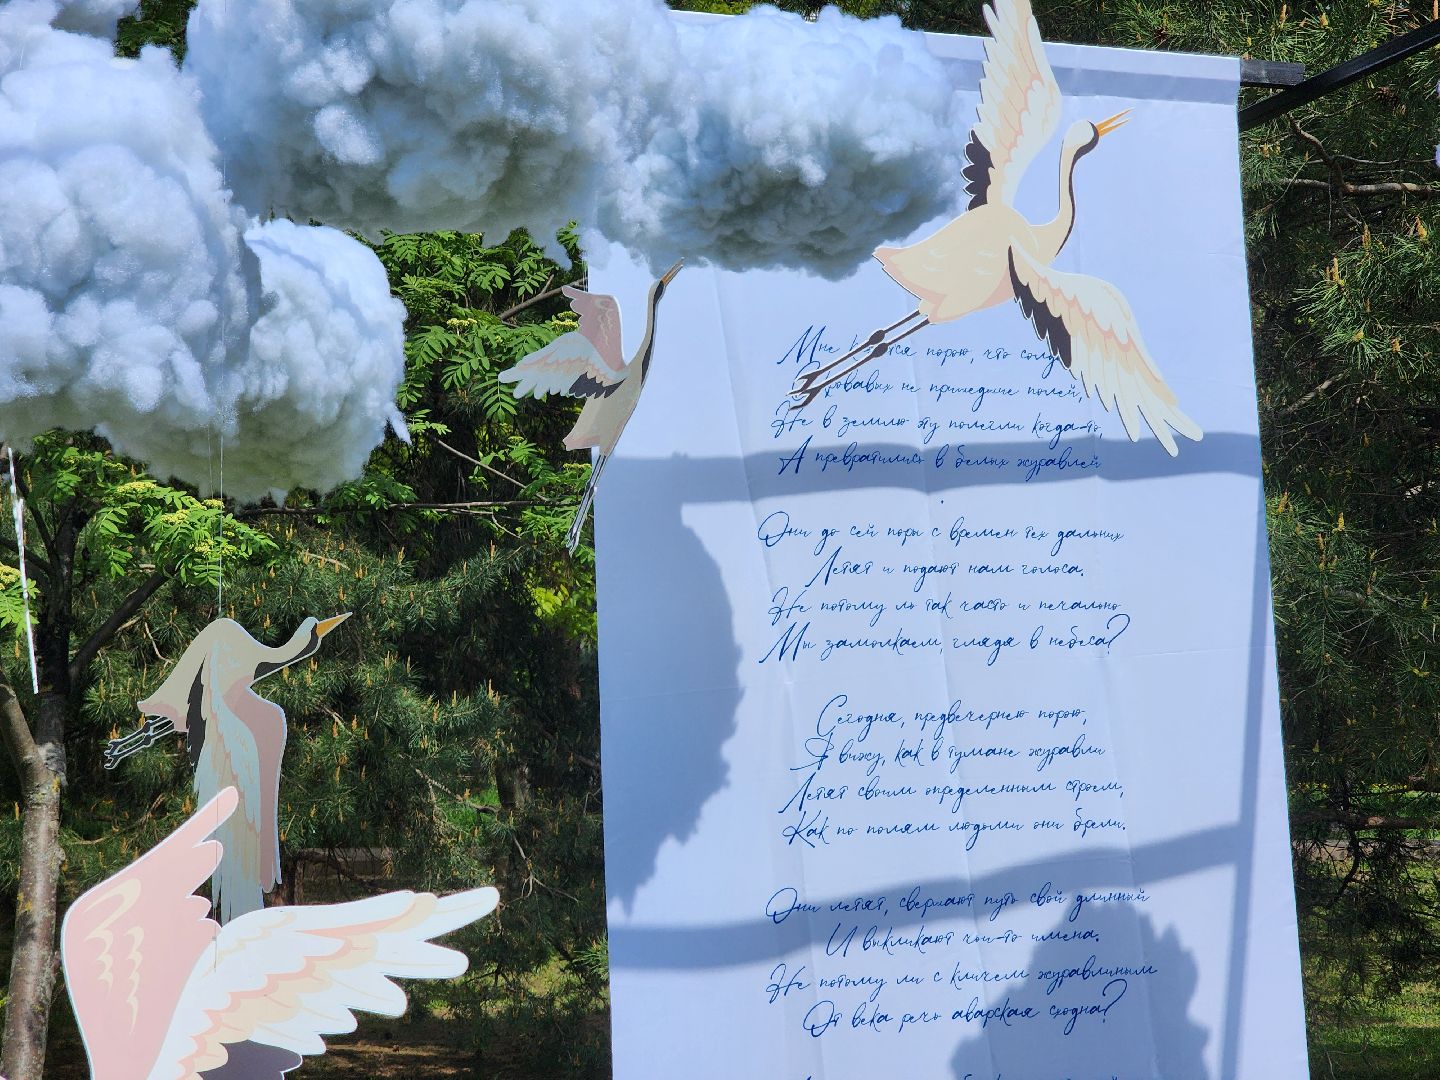 Мне кажется порою, что солд
С кровавых не пришедшие полей,
Не в землю эту полегли когда-то,
А превратились в белых журавлей
Они до сей поры с времен тех дальних
Летят и подают нам голоса.
Не потому ль так часто и печально
Мы замолкаем, глядя в небеса?
Сегодня, предвечернею порою,
Я вижу, как в тумане журавли
Летят своим определенным строем,
Как по полям людьми они брели.
Они летят, свершают путь свой длинный
И выкликают чьи-то имена.
Не потому ли с кличем журавлиным
От века речь аварская сходна?